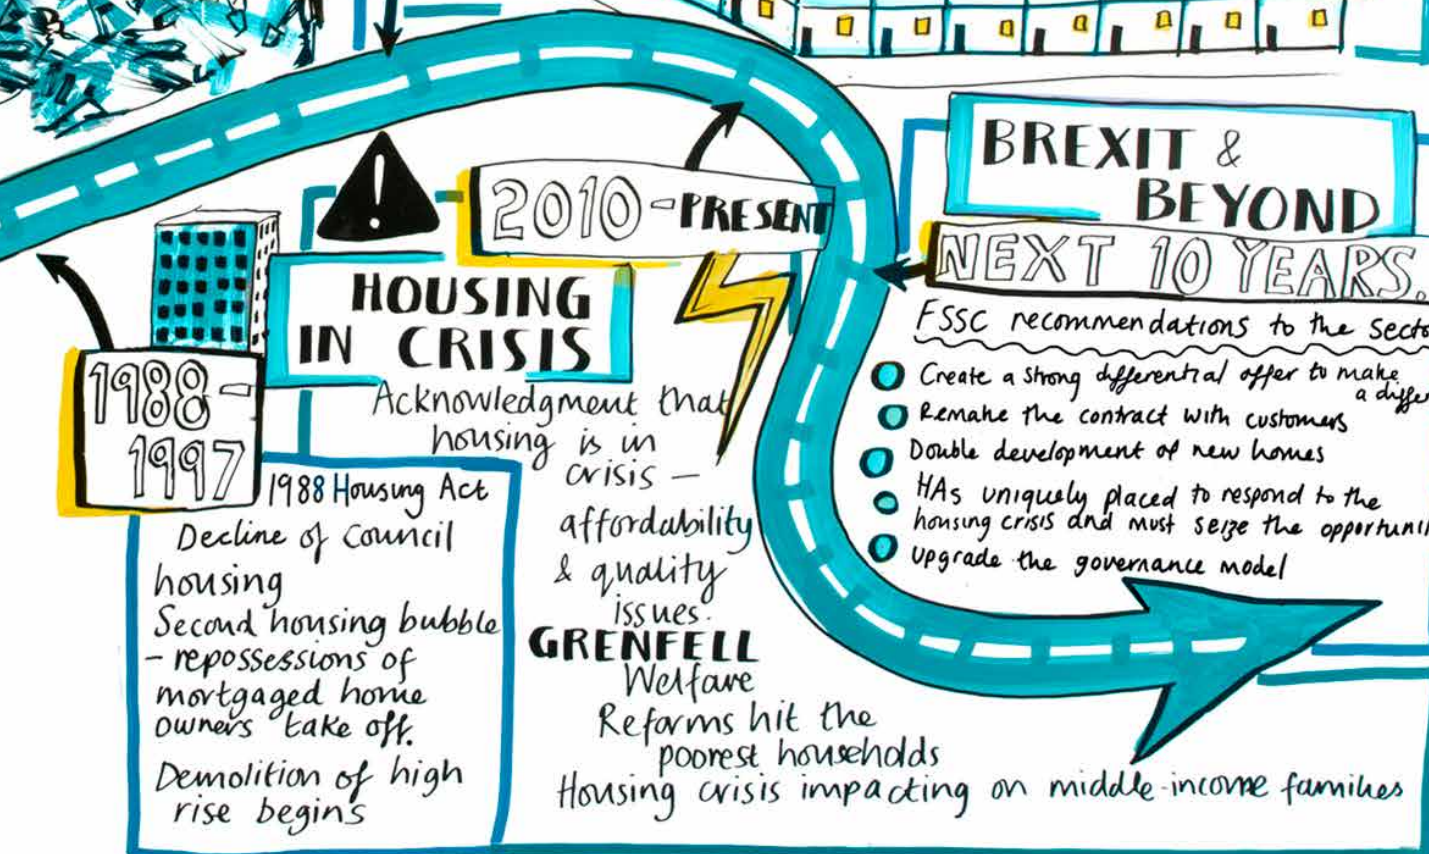 1988-
1997
1988 Housing Act
Decline of Council
housing
Second housing bubble
- repossessions of
mortgaged home
owners take off.
Demolition of high
rise begins
2010-PRESENT
HOUSING
IN CRISIS
Acknowledgment that
housing is in
crisis -
affordability
& quality
issues.
GRENFELL
Welfare
Reforms hit the
poorest households
Housing crisis impacting on middle-income families
BREXIT &
BEYOND
NEXT 10 YEARS.
FSSC recommendations to the Secto
Create a strong differential offer to make
a differ
Remake the contract with customers
Double development of new homes
HAs uniquely placed to respond to the
housing crisis and must seize the opportuni
upgrade the governance model